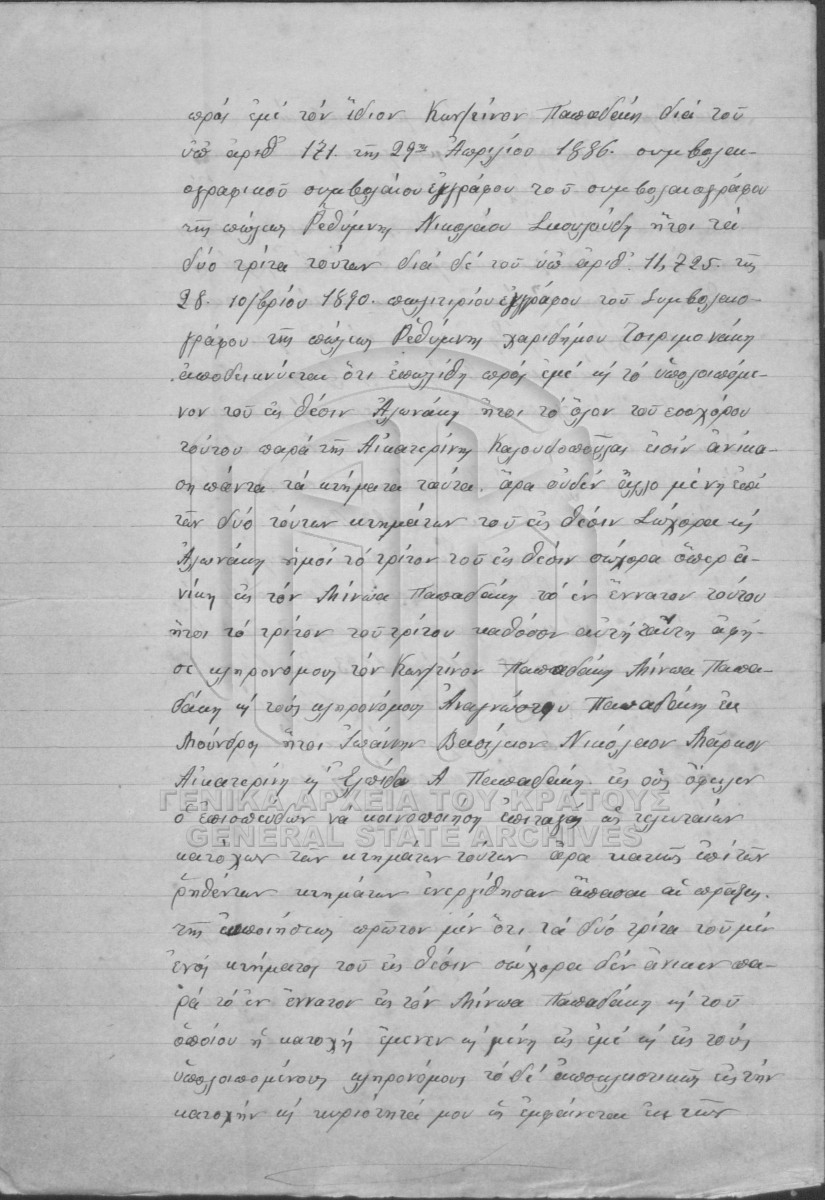 πρός ἐμέ τόν ἴδιον Κων/τῖνον Παπαδάκη διά τοῦ
ὑπ' ἀριθ 171. τῆς 29ης Ἀπριλίου 1886. συμβολαι-
ογραφικοῦ συμβολαίου ἐγγράφου τοῦ συμβολαιογράφου
τῆς πόλεως Ρεθύμνης Νικολάου Σκουλούδη ἤτοι τά
δύο τρίτα τούτων διά δέ τοῦ ὑπ' ἀριθ. 11,725. τῆς
28. 10/βρίου 1890. πωλητιρίου ἐγγράφου τοῦ Συμβολαιο-
γράφου τῆς πόλεως Ρεθύμνης χαριδήμου Τσιριμονάκη
ἀποδεικνύεται ὅτι ἐπωλίθη πρός ἐμέ κ τό ὑπολοιπόμε-
νον τοῦ εἰς θέσιν Ἁλωνάκη ἤτοι τό ὅλον τοῦ εσοχόρου
τούτου παρά τῆς Αἰκατερίνης Καλουδοπούλας εἰσίν ἀνίκα-
ση πάντα τά κτήματα ταῦτα. ἄρα οὐδέν ἄλλο μένη ἐπί
τῶν δύο τούτων κτημάτων τοῦ εἰς θέσιν Σώχορα κ
Ἁλωνάκη ἠμοί τό τρίτον τοῦ εἰς θέσιν σώχορα ὅπερ ἀ-
νίκη εἰς τόν Μίνωα Παπαδάκη τό ἐν ἔννατον τούτου
ἤτοι τό τρίτον τοῦ τρίτου καθόσον αὐτή ταύτη ἀφή-
σε κληρονόμους τόν Κων/τῖνον Παπαδάκη Μίνωα Παπα-
δάκη κ τούς κληρονόμους Ἀναγνώστου Παπαδάκη ἐκ
Μούνδρος ἤτοι Ἰωάννην Βασίλειον Νικόλαον Μάρκον
Αἰκατερίνη κ Ἐλπίδα Α. Παπαδάκη εἰς οὕς ὄφειλεν
ΓΕΝΙΚΑ ΑΡΧΕΙΑ ΤΟΥ ΚΡΑΤΟΥΣ
ὁ ἐπισπεύδων νά κοινοποιήση ἐπιταγάς ὡς τελευταίων
GENERAL STATE ARCHIVES
κατόχων τῶν κτημάτων τούτων ἄρα κακῶς ἐπί τῶν
ῥηθέντων κτημάτων ἐνεργίθησαν ἅπασαι αἱ πράξεις
τῆς ἐκποιήσεως πρῶτον μέν ὅτι τά δύο τρίτα τοῦ μέν
ἑνός κτήματος τοῦ εἰς θέσιν σώχορα δέν ἄνικεν πα-
ρά τό ἐν ἔννατον εἰς τόν Μίνωα Παπαδάκη κ τοῦ
ὁποίου ἡ κατοχή ἔμενεν κ μένη εἰς ἐμέ κ εἰς τούς
ὑπολοιπομένους κληρονόμους τό δέ ἀποκλειστικῶς εἰς τήν
κατοχήν κ κυριότητά μου ὡς ἐμφαίνεται ἐκ τῶν